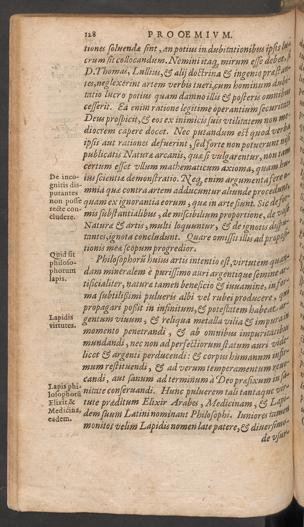 128 PROOEMIVM.
tiones soluendæ sint, an potius in dubitationibus ipsis lu-
crum sit collocandum. Nemini itaq, mirum esse debet, si
D. Thomas, Lullius, & alij doctrina & ingenio præstan-
tes, neglexerint artem verbis tueri, cum hominum dubi-
tatio lucro potius quam damno illis & posteris omnibus
cesserit. Ea enim ratione legitime operantium securitati
Deus prospicit, & eos ex inimicis suis vtilitatem non me-
diocrem capere docet. Nec putandum est quod verba
ipsis aut rationes defuerint, sed forte non potuerunt nec
publicatis Naturæ arcanis, quæ si vulgarentur, non tam
certum esset vllum mathematicum axioma, quam hu-
ius scientiæ demonstratio. Neq, enim argumenta fere o-
mnia quæ contra artem adducuntur aliunde procedunt,
quam ex ignorantia eorum, quæ in arte sunt. Sic de for-
mis substantialibus, de miscibilium proportione, de vijs
Naturæ & artis, multi loquuntur, & de ignotis dispu-
tantes, ignota concludunt. Quare omissis illis ad proposi-
tionis meæ scopum progredior.
De inco-
gnitis dis-
putantes
non posse
recte con-
cludere.
Philosophorū huius artis intentio est, virtutem quan-
dam mineralem è purissimo auri argentique semine ar-
tificialiter, naturæ tamen beneficio & iuuamine, in for-
ma subtilissimi pulueris albi vel rubei producere, quæ
propagari possit in infinitum, & potestatem habeat ar-
gentum viuum, & reliqua metalla vilia & impura in
momento penetrandi, & ab omnibus impuritatibus
mundandi, nec non ad perfectiorum statum auri vide-
licet & argenti perducendi: & corpus humanum infir-
mum restituendi, & ad verum temperamentum reu-
candi, aut sanum ad terminum à Deo præfixum in sa-
nitate conseruandi. Hunc puluerem tali tantaque vir-
tute præditum Elixir Arabes, Medicinam, & Lapi-
dem suum Latini nominant Philosophi. Iuniores tamen
monitos velim Lapidis nomen late patere, & diuersimo-
de vsur-
Quid sit
philoso-
phorum
lapis.
Lapidis
virtutes.
Lapis phi-
losophorū
Elixir &
Medicina,
eadem.